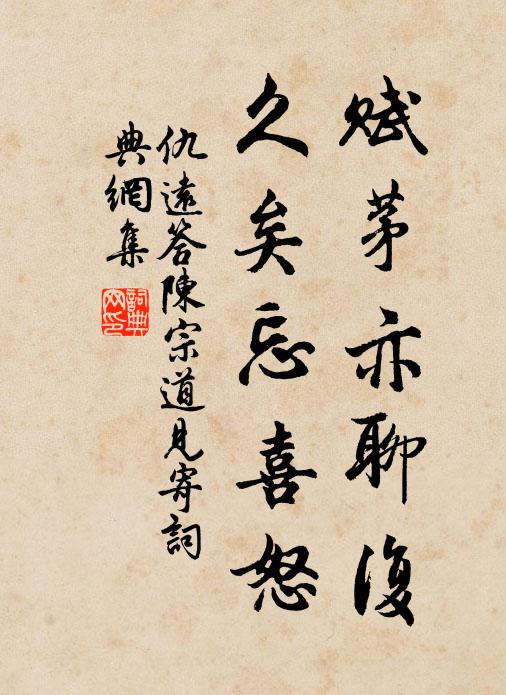 赋茅亦聊復
久矣忘喜怒
仇遠答陳宗道見寄詞
典網集
詞典
网印